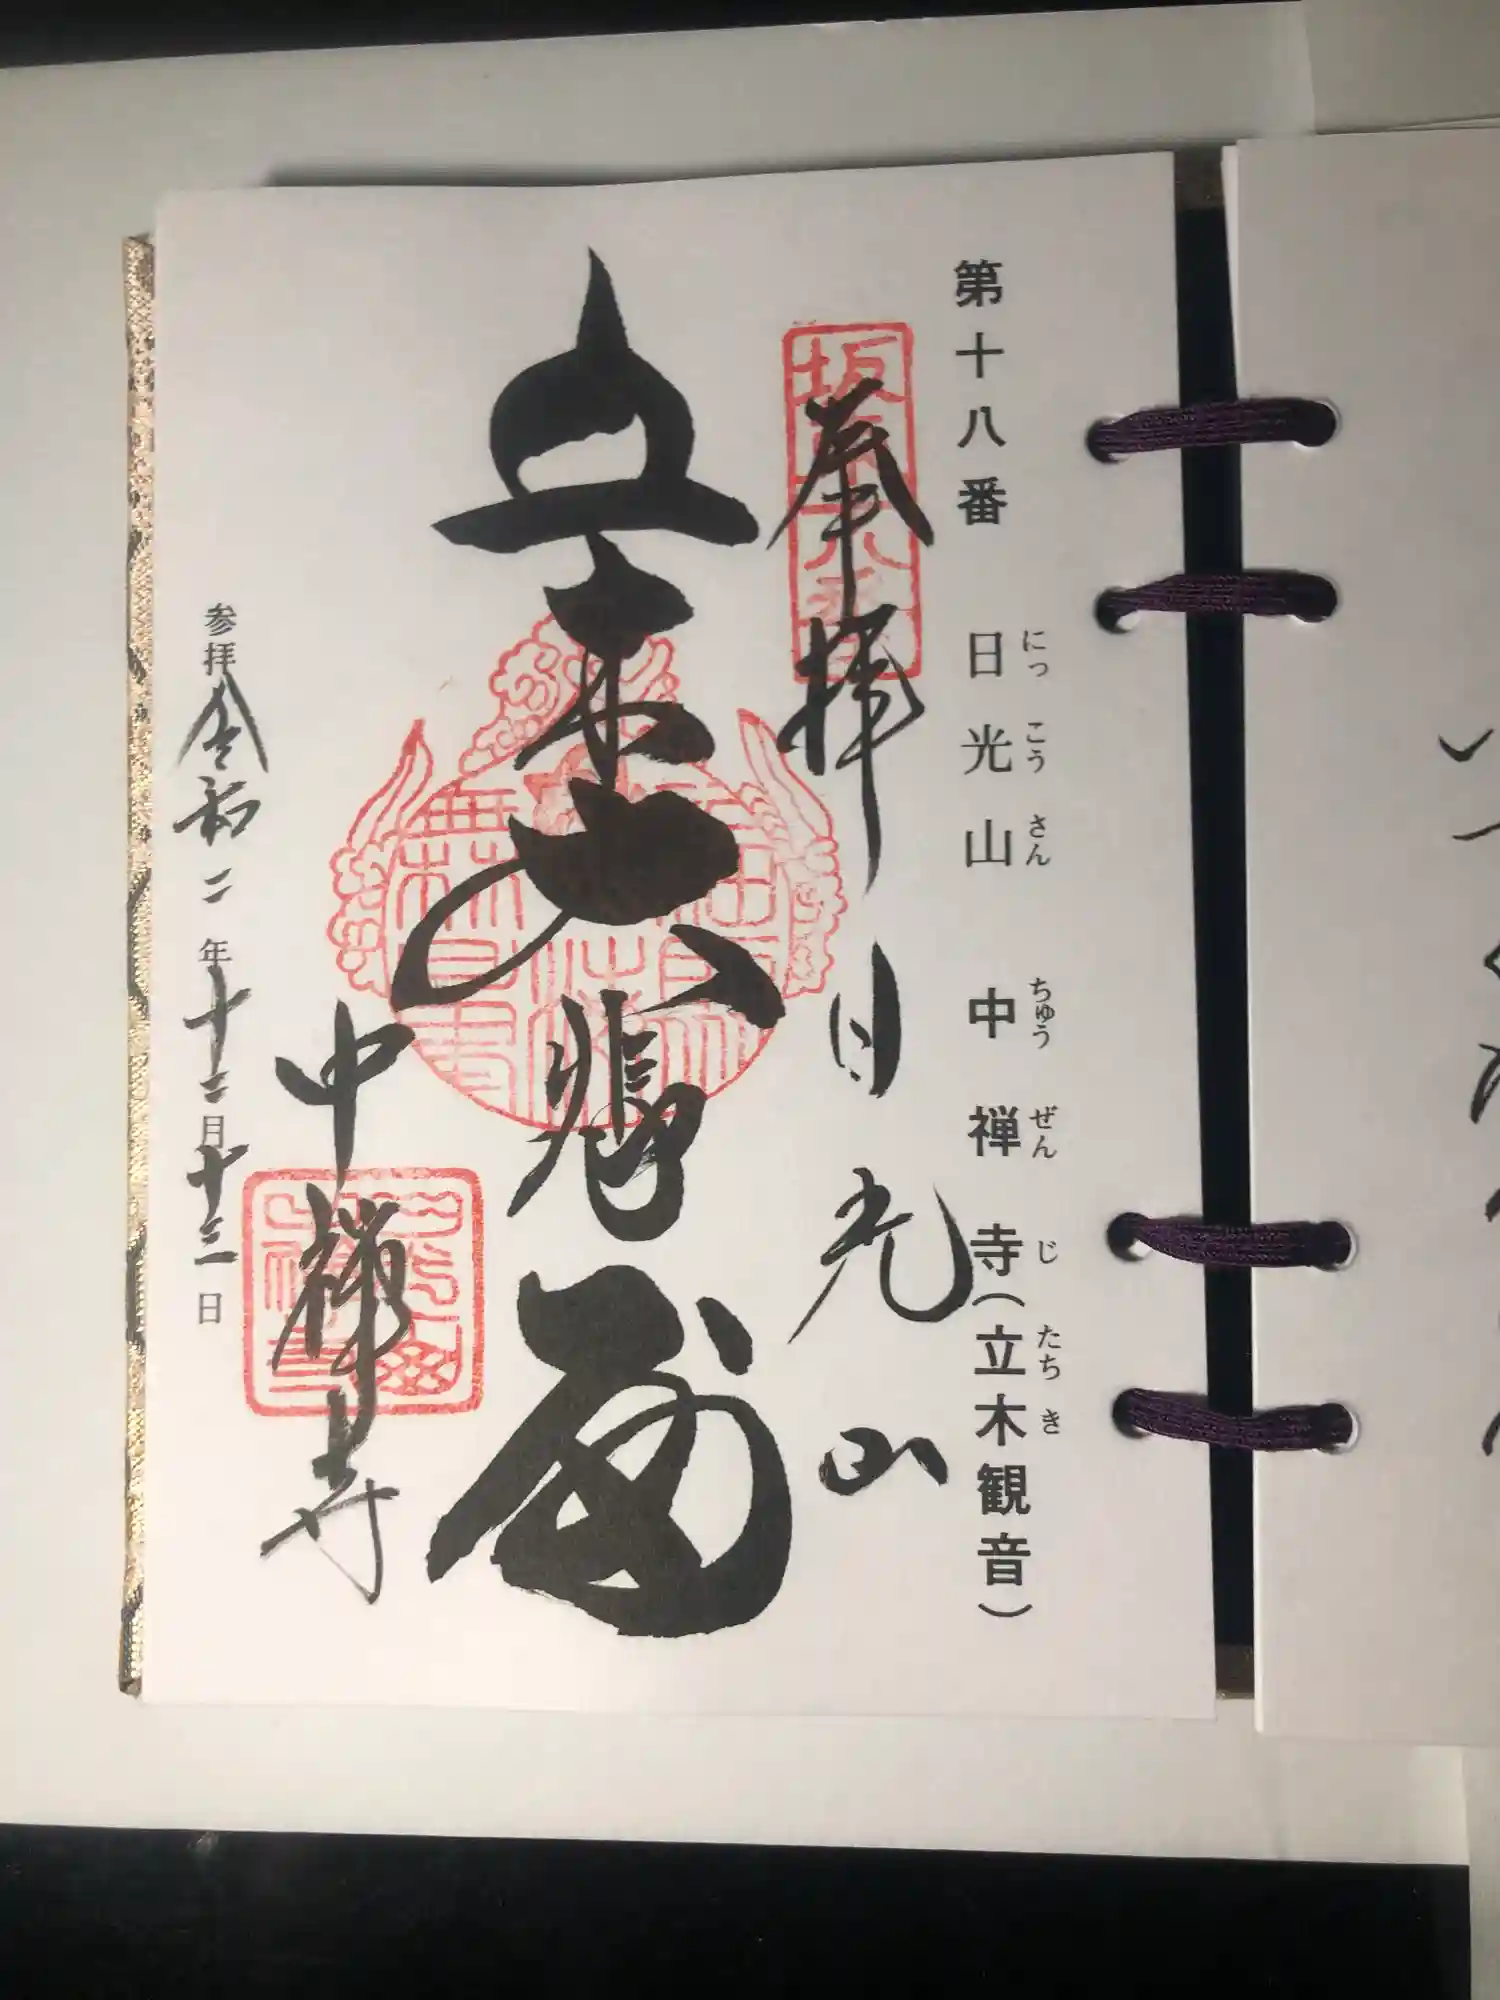 第十八番 日光山 中禅寺(立木観音)
にっこうさん ちゅうぜんじ たちき
奉拝 日光山
坂東十八番
立木大悲殿
中禅寺
参拝令和二年十二月十三日